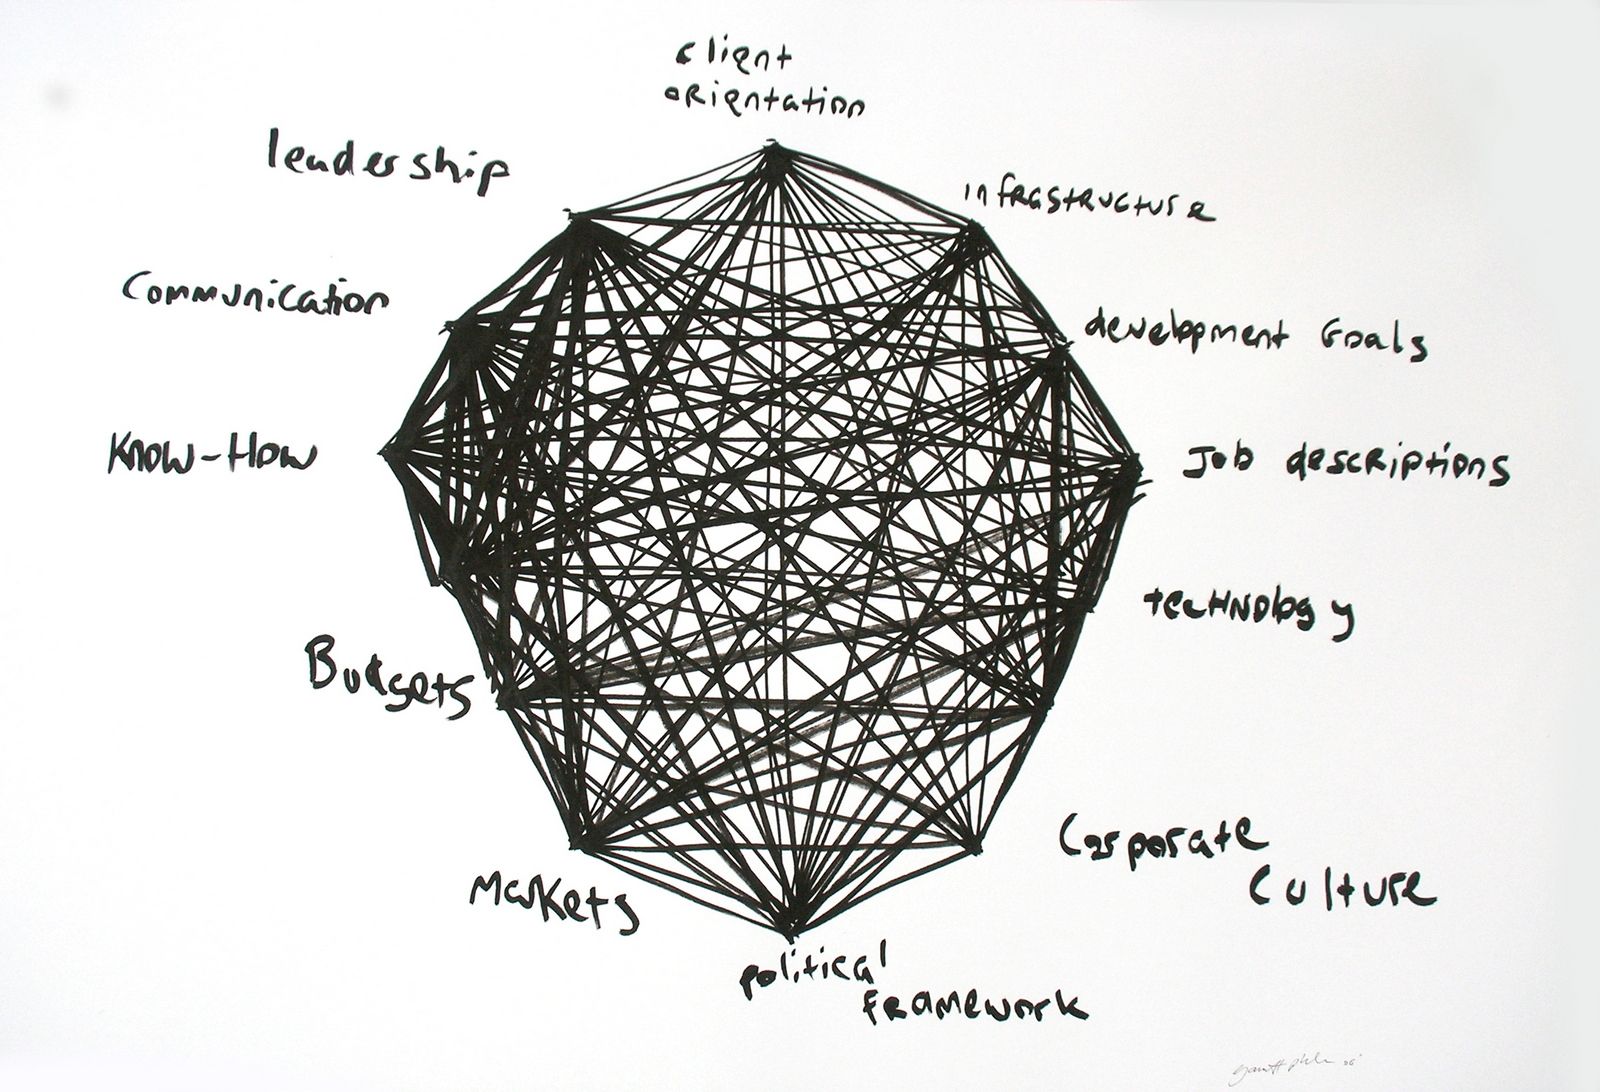 client
orientation
leadership
infrastructure
Communication
development Goals
Know-How
Job descriptions
technology
Budgets
Corporate
Culture
Markets
political
framework